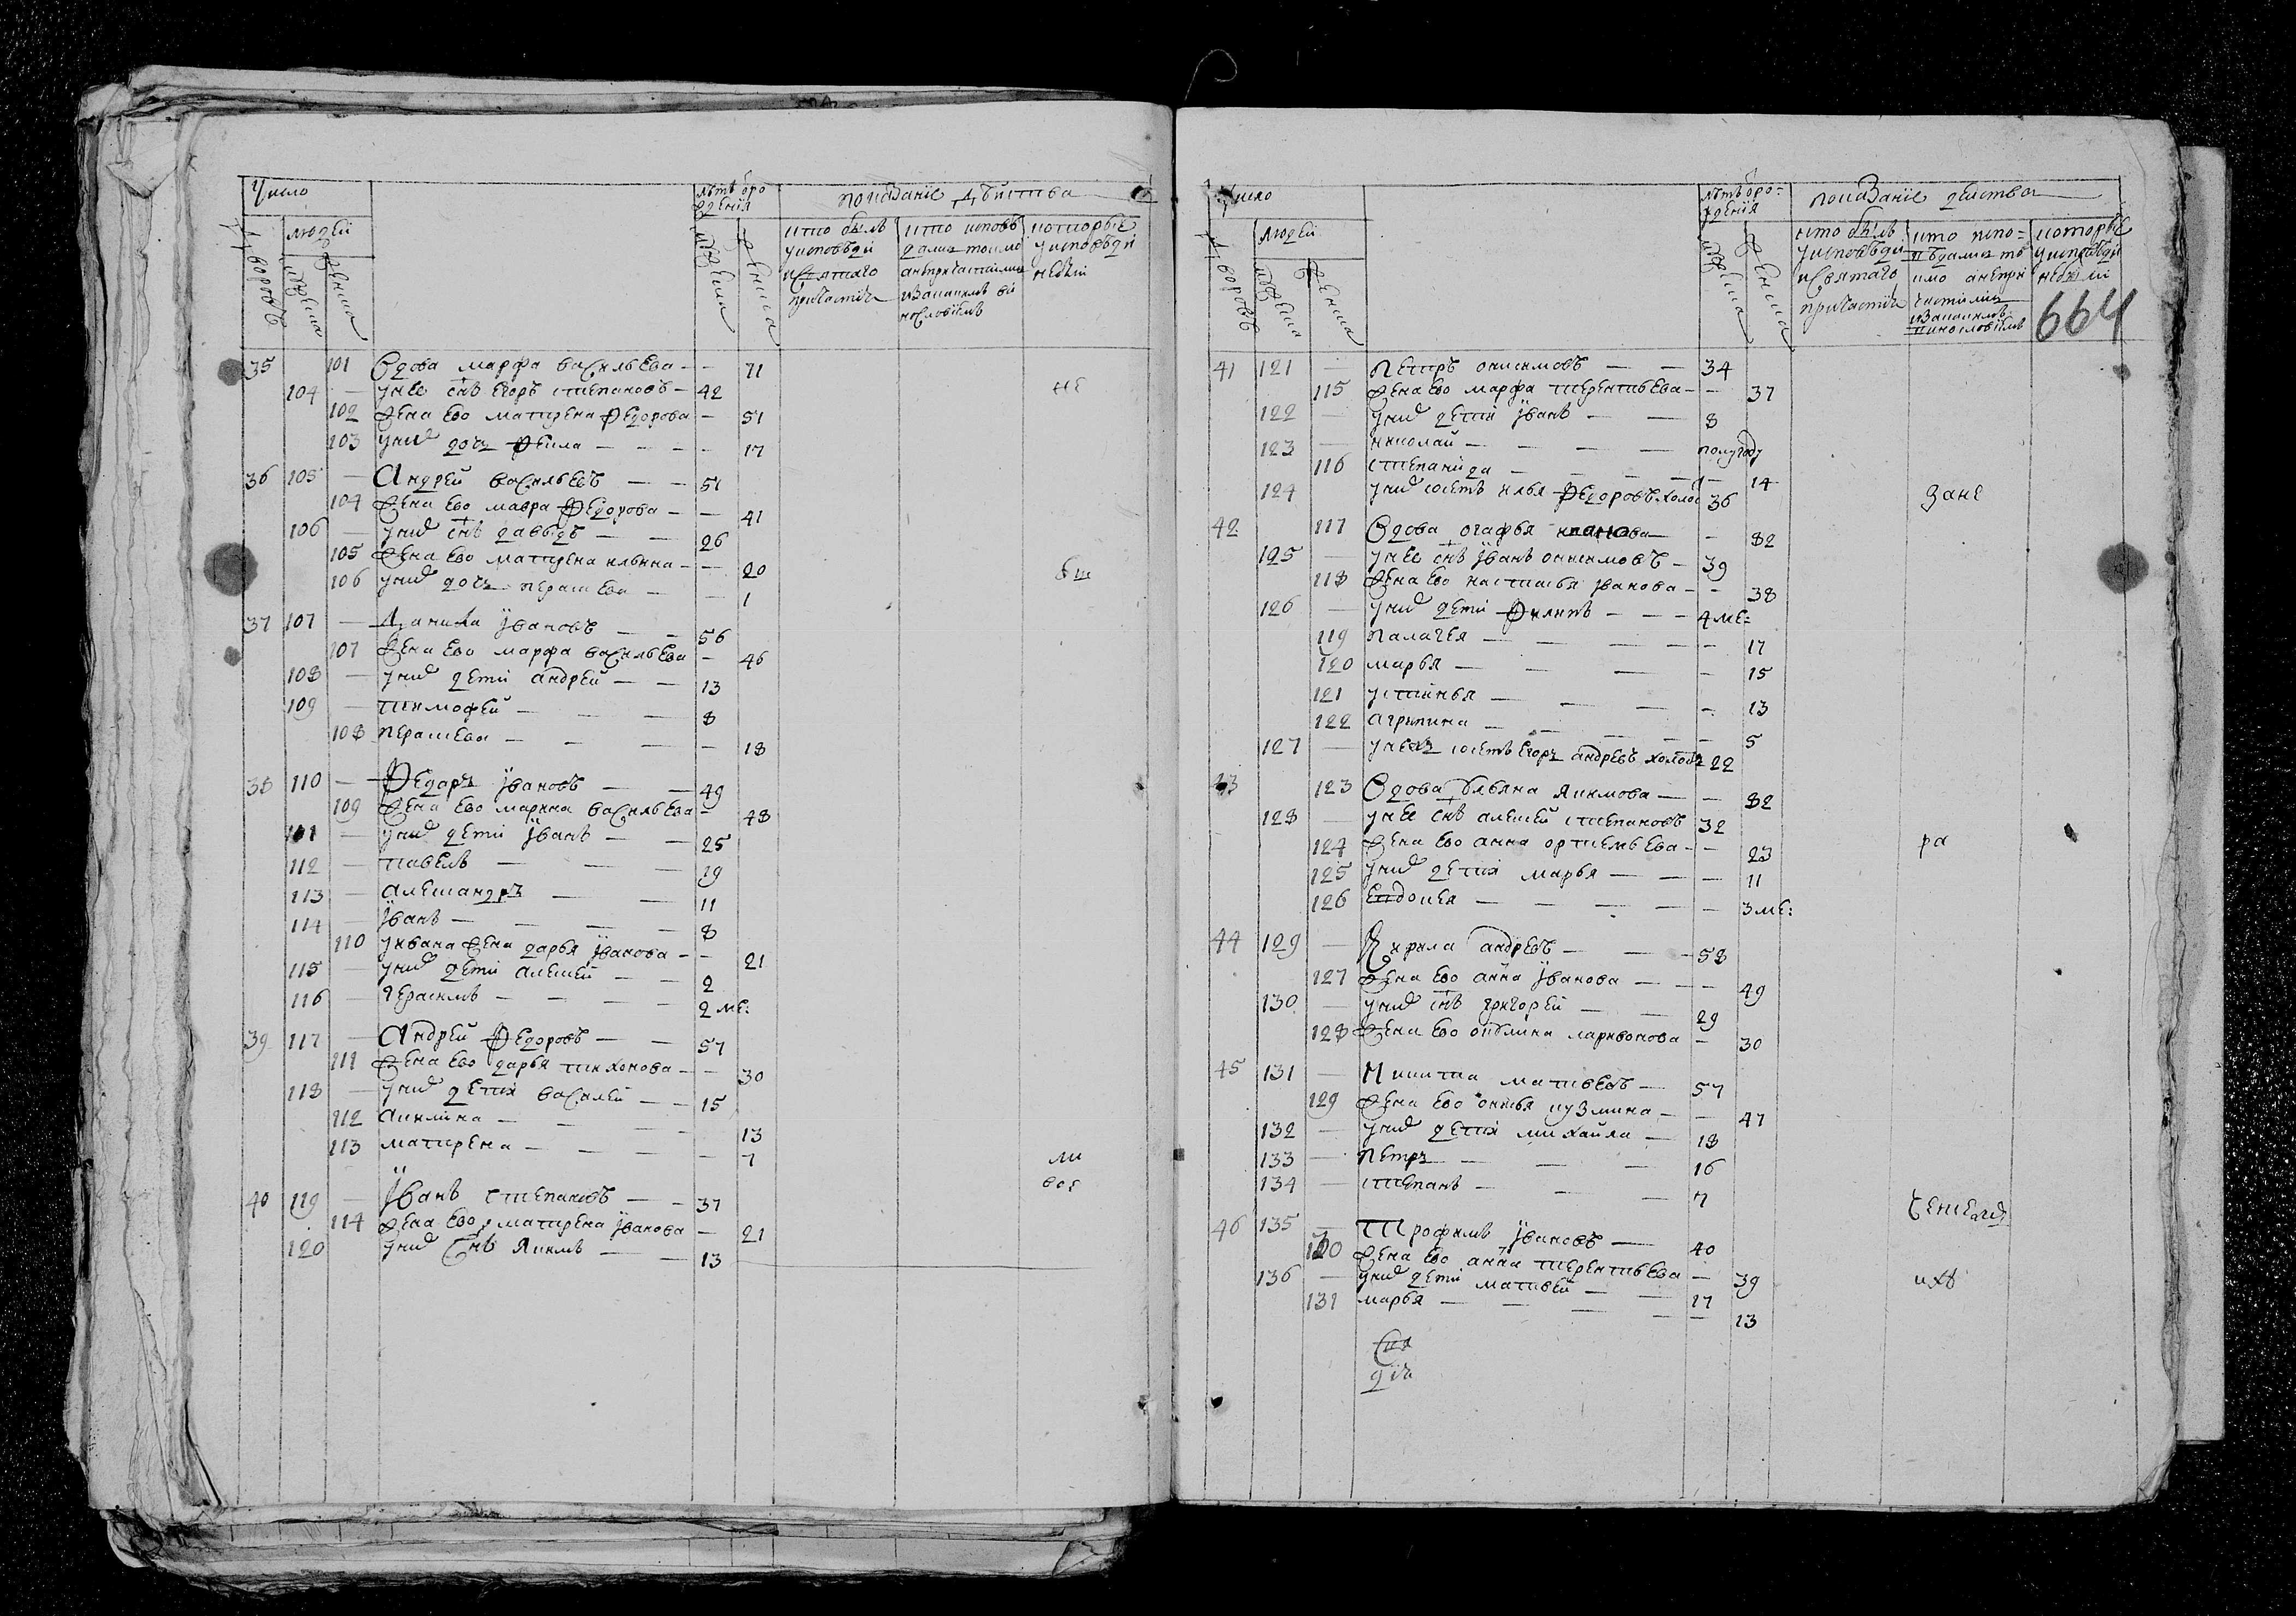 Число
лѣтѣ оро
ждения
показание дѣйства
людей
дворовъ
мужеска
женска
мужеска
женска
кто былъ
у исповѣди
и святаго
причастия
кто исповѣ
дался токмо
а не причастился
которые
у исповѣди
не были
35 101 Вдова марфа васильева - - 71
104 - у нее снъ егоръ степановъ - 42
102 жена ево матрена федорова - 51
103 у них дочь - - - - 17
36 105 - Андрей васильевъ - - 51
104 жена ево мавра федорова - - 41
106 - у них снъ давыдъ - - 26
105 жена ево матрена ильина - - 20
106 у них дочь - - 1
37 107 - Данила ивановъ - - 56
107 жена ево марфа васильева - 46
108 - у них дети андрей - - 13
109 - тимофей - - - 8
108 - - - - 18
38 110 - Федоръ ивановъ - - 49
109 жена ево марина васильева - 48
111 - у них дети иванъ - - 25
112 - павелъ - - - 19
113 - александръ - - 11
114 - иванъ - - - - 8
110 у ивана жена дарья иванова - - 21
115 - у них дети алексей - - 2
116 - герасимъ - - - - 2 ме:
39 117 - Андрей федоровъ - - 57
111 жена ево дарья тихонова - - 30
118 - у них дети василей - - 15
112 акилина - - - - 13
113 матрена - - - - - 7
40 119 - Иванъ степановъ - - 37
114 жена ево матрена иванова - 21
120 у них снъ якимъ - - 13
не
бы
ли
все
Число
лѣтъ оро=
ждения
показание действа
людей
дворовъ
мужеска
женска
мужеска
женска
кто былъ
у исповѣди
и святаго
причастия
кто испо=
вѣдался то
кмо а не при
частился
которые
у исповѣди
не были
664
41 121 - Петръ онисимовъ - - 34
115 жена ево марфа терентьева - - 37
122 - у них дети иванъ - - 8
123 - николай - - - - полугоду
116 степанида - - - - 14
124 у них илья федоровъ 36
42 117 Вдова огафья - 82
125 - у нее снъ иванъ онисимовъ - 39
118 жена ево настасья иванова - - 38
126 - у них дети филипъ - - - 4 ме:
119 палагея - - - - - 17
120 марья - - - - 15
121 устинья - - - - - 13
122 агрипина - - - - - 5
127 - егоръ андревъ 22
43 123 Вдова ульяна якимова - - 82
128 - у нее снъ алексей степановъ 32
124 жена ево анна ортемьева - - 23
125 у них дети марья - - - 11
126 евдокея - - - - - 3 ме:
44 129 - Кирила андревъ - - - 58
127 жена ево анна иванова - - - 49
130 - у них снъ григорей - - 29
128 жена ево ларивонова - 30
45 131 - Никита матвевъ - 57
129 жена ево кузмина - - 47
132 - у них дети михайла - 18
133 - петръ - - - 16
134 - степанъ - - - 7
46 135 - Трофимъ ивановъ - 40
130 жена ево анна терентьева - 39
136 - у них дети матвей - - 17
131 марья - - - - - 13
за не
ра
ихъ